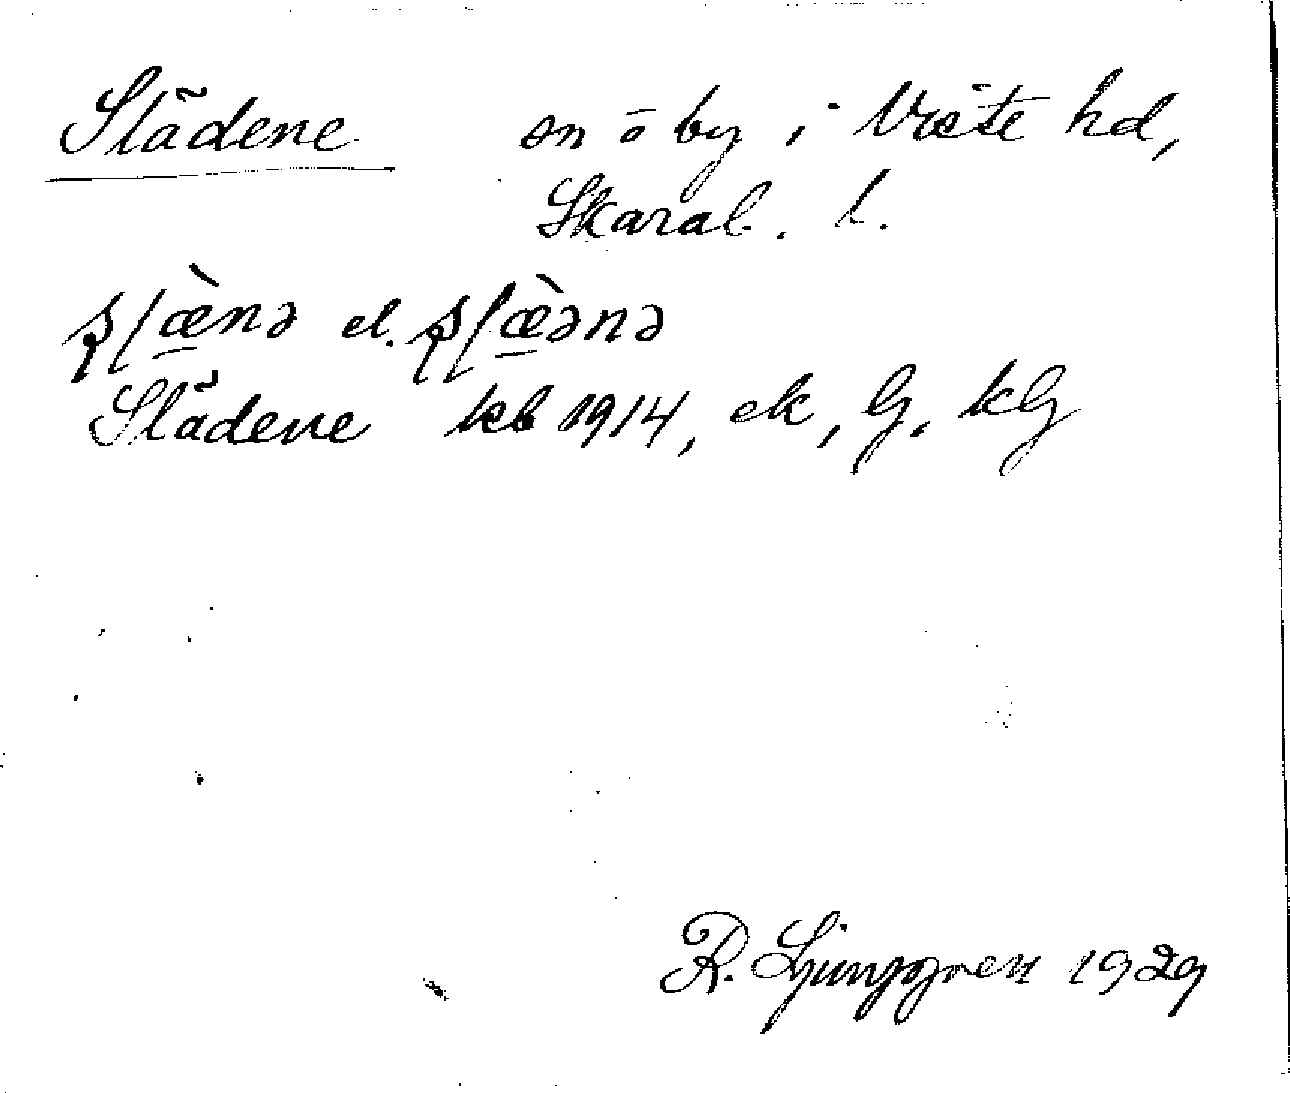 Slädene sn o by i Viste hd,
Skarab. l.
ʂɭæ̀nə el. ʂɭæ̀ənə
Slädene kb 1914, ek, G. kG
R. Ljunggren 1929